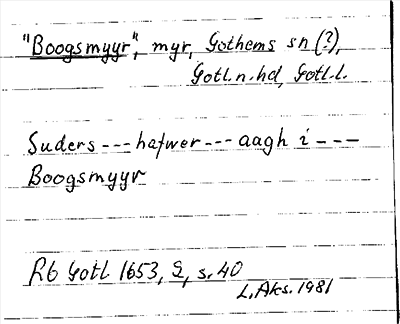 "Boogsmyyr", myr, Gothems sn (?),
Gotl. n. hd, Gotl. l.
Suders --- hafwer --- aagh i ---
Boogsmyyr
Rb Gotl. 1653, 2, s. 40
L. Aks. 1981